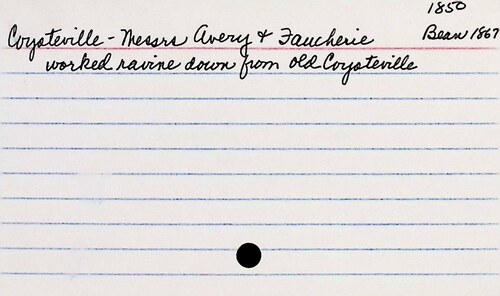 1850
Coyoteville - Messrs Avery & Faucherie Bean 1867
worked ravine down from old Coyoteville